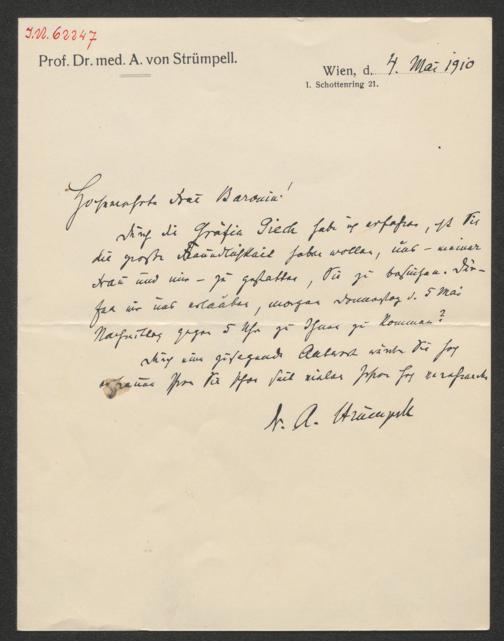 I.N. 62247
Prof. Dr. med. A. von Strümpell.
Wien, d. 4. Mai 1910
I. Schottenring 21.
Hochverehrte Frau Baronin!
Durch die Gräfin habe ich erfahren, daß Sie
die große Freundlichkeit haben wollen, uns – meiner
Frau und mir – zu gestatten, Sie zu besuchen. Dür-
fen wir uns erlauben, morgen Donnerstag d. 5 Mai
Nachmittag gegen 5 Uhr zu Ihnen zu kommen?
Durch eine zusagende Antwort würden Sie hoch
erfreuen Ihren Sie schon seit vielen Jahren hoch verehrenden
A. Strümpell